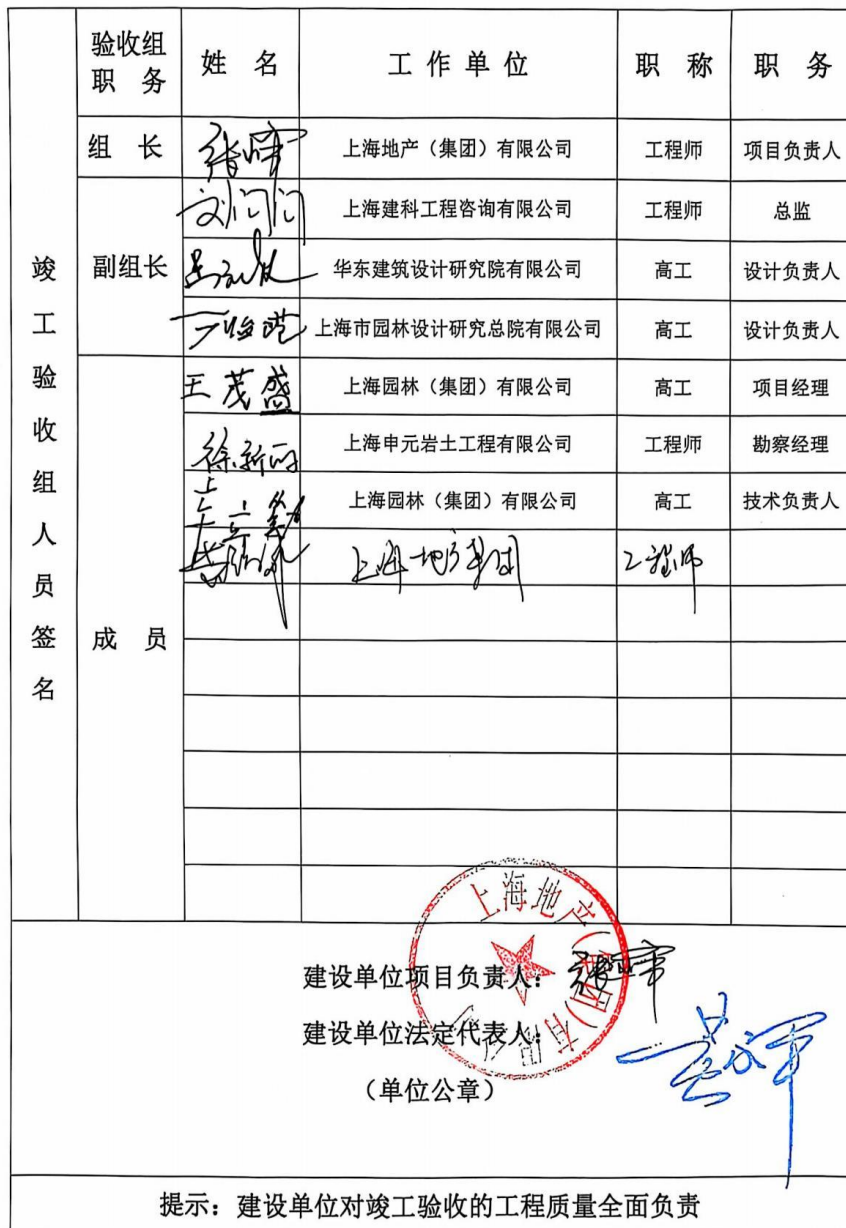 验收组职务 姓名 工作单位 职称 职务
组长 上海地产（集团）有限公司 工程师 项目负责人
上海建科工程咨询有限公司 工程师 总监
副组长 华东建筑设计研究院有限公司 高工 设计负责人
上海市园林设计研究总院有限公司 高工 设计负责人
王茂盛 上海园林（集团）有限公司 高工 项目经理
上海申元岩土工程有限公司 工程师 勘察经理
上海园林（集团）有限公司 高工 技术负责人
上海地产集团 工程师
成员
竣工验收组人员签名
上海地产（集团）有限公司
建设单位项目负责人：
建设单位法定代表人：
（单位公章）
提示：建设单位对竣工验收的工程质量全面负责